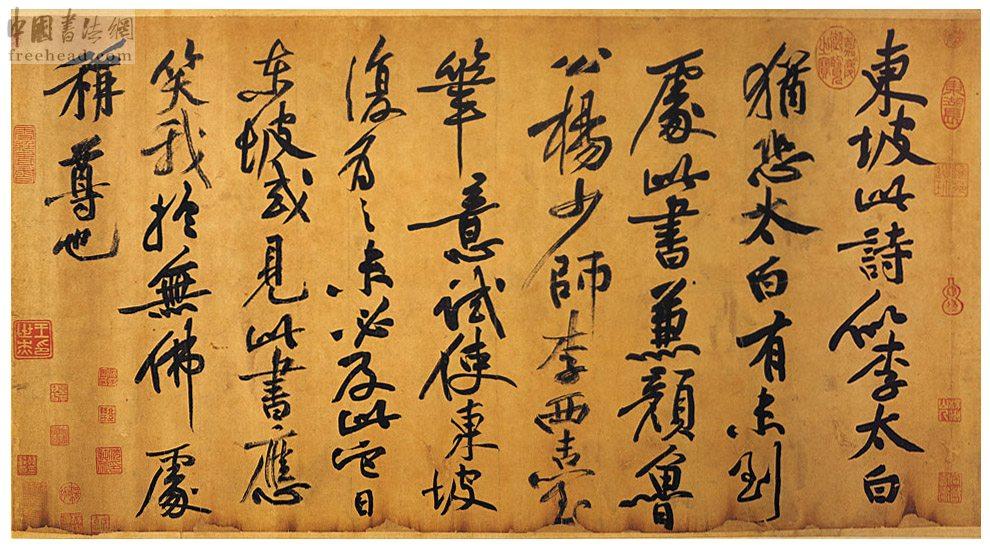 東坡此詩似李太白
猶恐太白有未到
處此書兼顏魯
公楊少師李西臺
筆意試使東坡
復為之未必及此它日
東坡或見此書應
笑我於無佛處
稱尊也
中國書法網
freehead.com